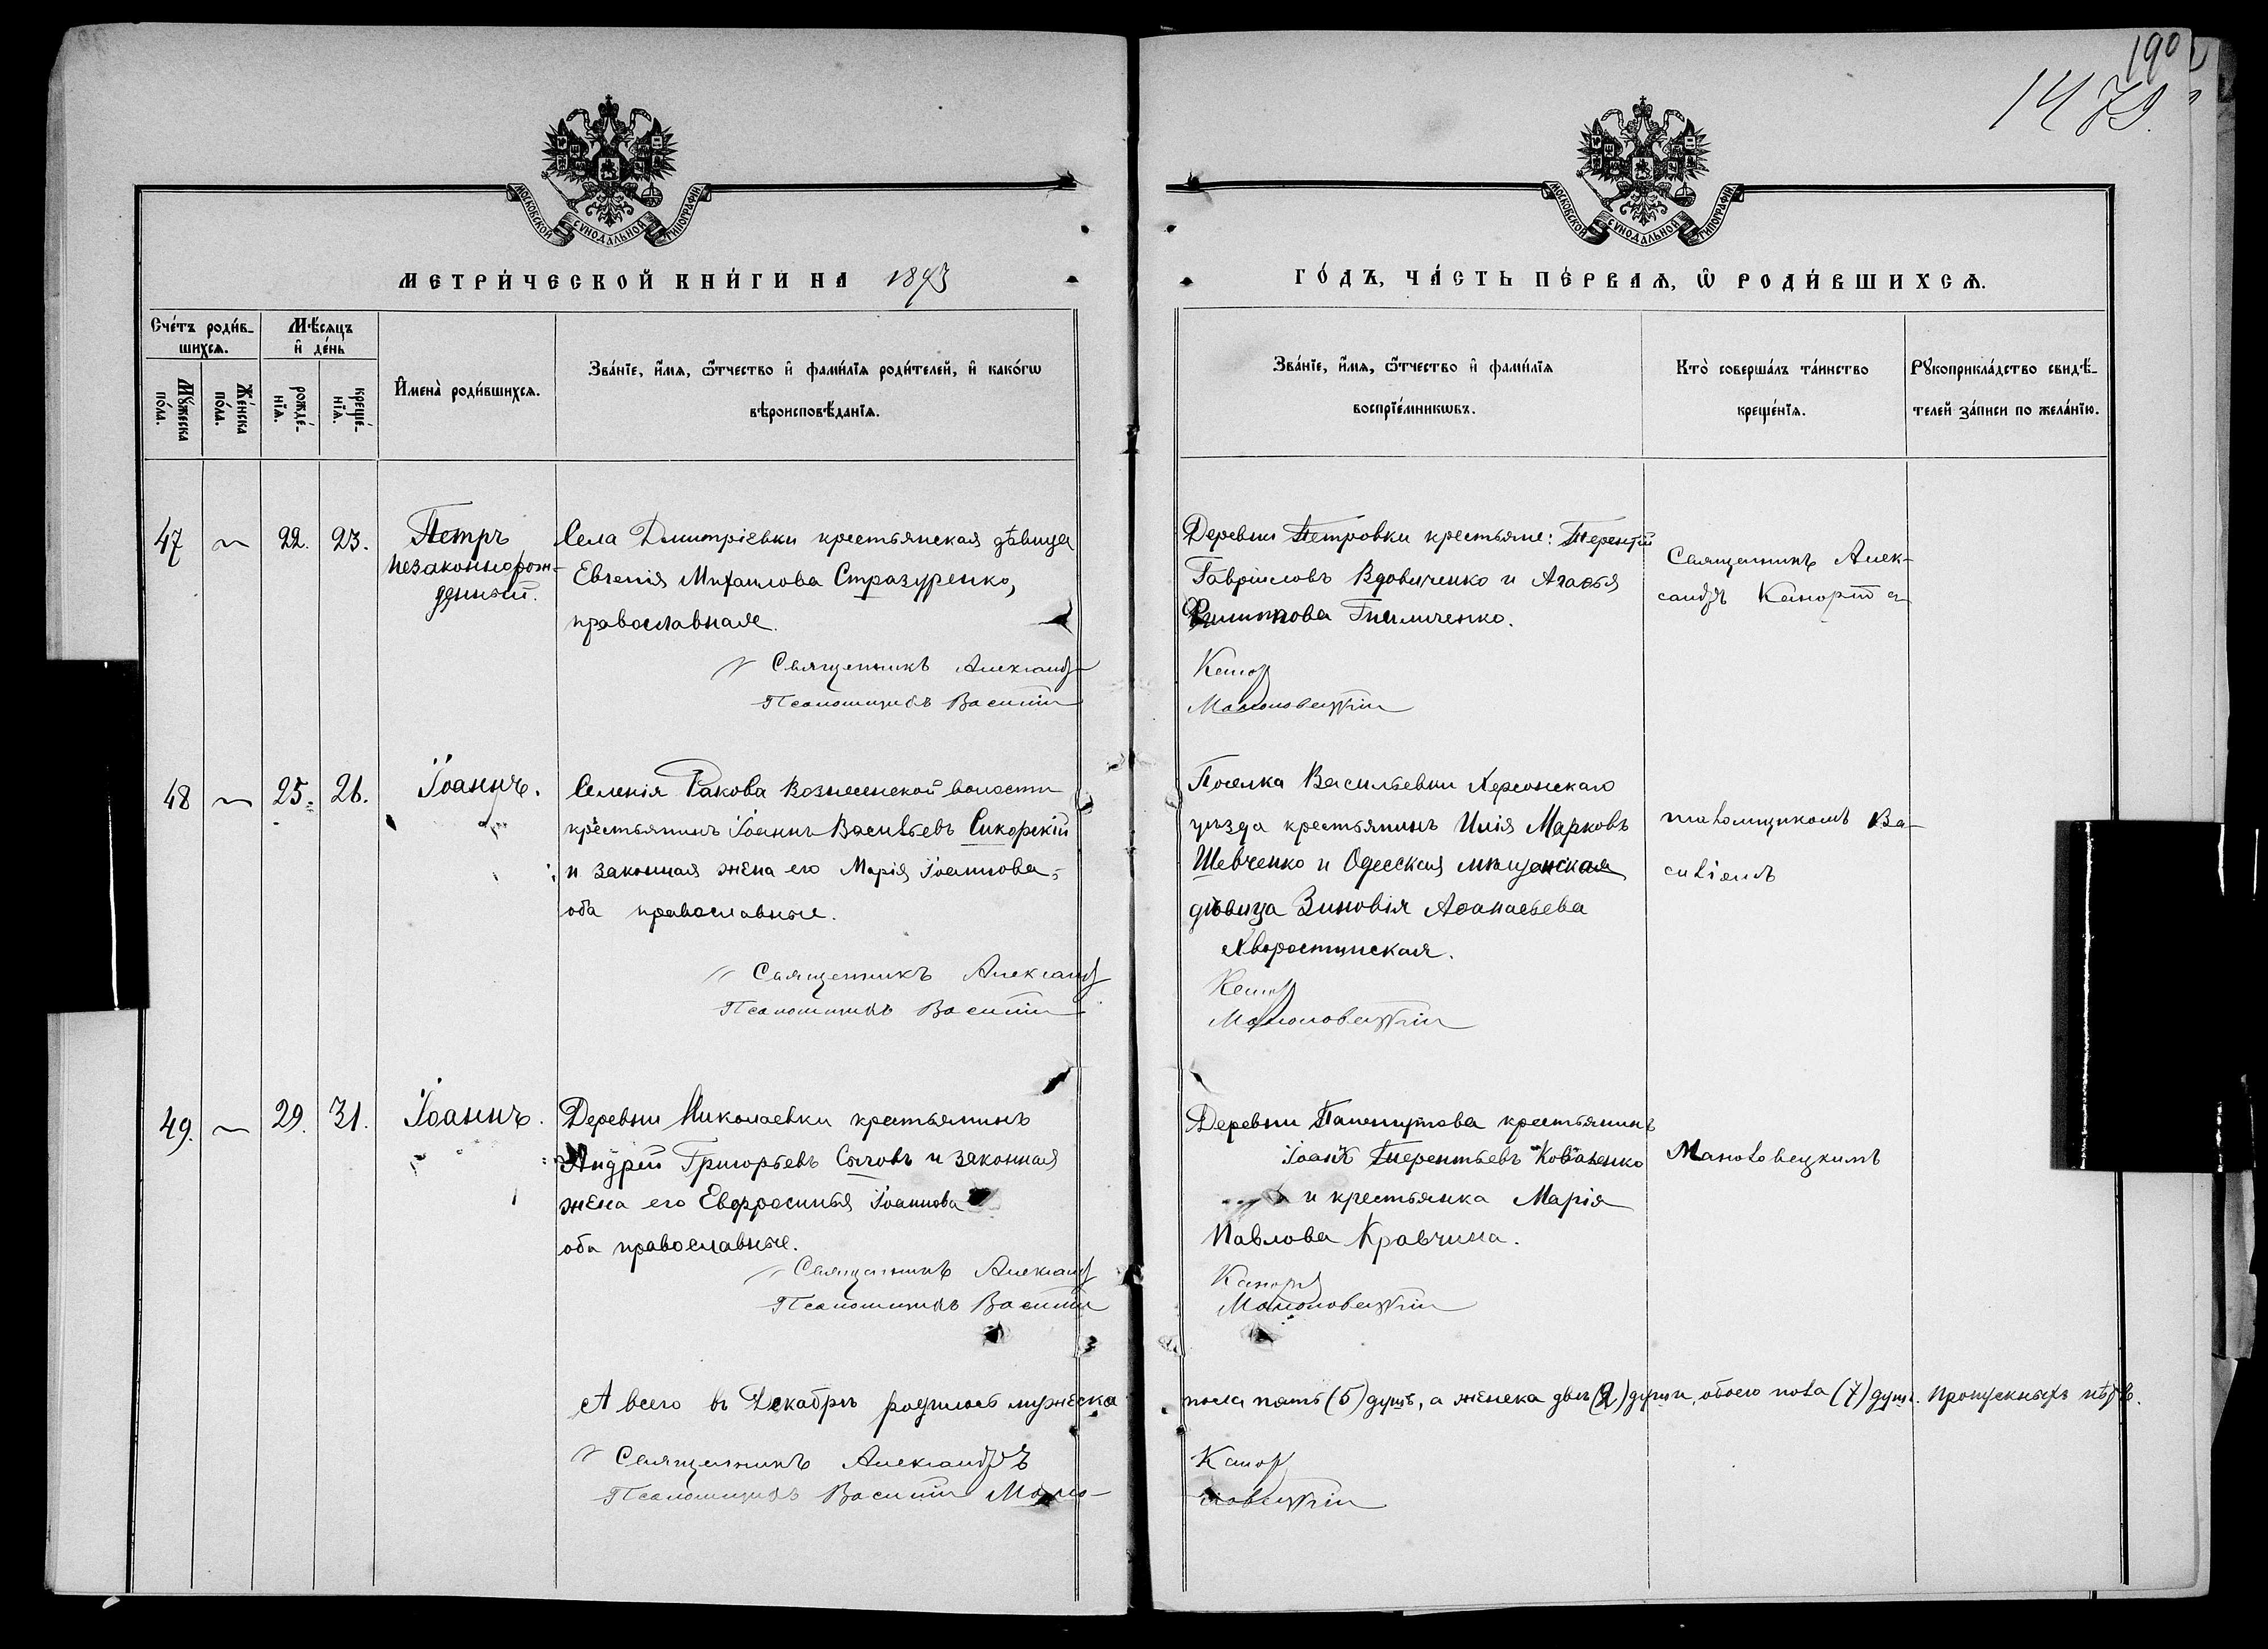 190
1479.
МОСКОВСКОЙ СѴНОДАЛЬНОЙ ТИПОГРАФІИ
МОСКОВСКОЙ СѴНОДАЛЬНОЙ ТИПОГРАФІИ
МЕТРИ́ЧЕСКОЙ КНИ́ГИ НА 1893
ГО́ДЪ, ЧА́СТЬ ПЕ́РВАѦ, Ѡ҆ РОДИ́ВШИХСѦ.
Сче́тъ роди́в-
шихсѧ.
Мѣ́сѧцъ
и҆ де́нь
Мꙋ́жеска
по́ла.
Же́нска
по́ла.
рожде́-
нїѧ.
креще́-
нїѧ.
И҆мена̀ роди́вшихсѧ.
Зва́нїе, и҆́мѧ, ѻ҆́тчество и҆ фами́лїѧ роди́телей, и҆ како́гѡ
вѣроисповѣ́данїѧ.
Зва́нїе, и҆́мѧ, ѻ҆́тчество и҆ фами́лїѧ
воспрїе́мникѡвъ.
Кто̀ соверша́лъ та́инство
креще́нїѧ.
Рꙋкоприкла́дство свидѣ́-
телей за́писи по жела́нїю.
47 ~ 22. 23.
Петръ
незаконнорож-
денный.
Села Дмитріевки крестьянская дѣвица
Евгенія Михаилова Стразуренко,
православная.
Священникъ Александр
Псаломщикъ Василій
Деревни Петровки крестьяне: Терентій
Гавріиловъ Вдовиченко и Агафья
Филиппова
Священникъ Алек-
сандръ
48 ~ 25. 26.
Іоаннъ.
Селенія Ракова Вознесенской волости
крестьянинъ Іоаннъ Васильевъ Сикорскій
и законная жена его Марія Іоаннова,
оба православные.
Священникъ Александр
Псаломщикъ Василій
Поселка Васильевки Херсонскаго
уѣзда крестьянинъ Илія Марковъ
Шевченко и Одесская мѣщанская
дѣвица Зиновія Аѳанасьева
Хворостинская.
псаломщикомъ Ва-
силіемъ
49. ~ 29. 31.
Іоаннъ.
Деревни Николаевки крестьянинъ
Андрей Григорьевъ Сычовъ и законная
жена его Евфросинья Іоаннова
оба православные.
Священникъ Александр
Псаломщикъ Василій
Деревни крестьянинъ
Іоаннъ Терентьевъ Коваленко
и крестьянка Марія
Павлова Кравчина.
Маноловецкимъ
А всего въ Декабрѣ родилось мужеска
пола пять (5) душъ, а женска двѣ (2) души, обоего пола (7) душъ. Пропускныхъ нѣтъ.
Священникъ Александръ
Псаломщикъ Василій